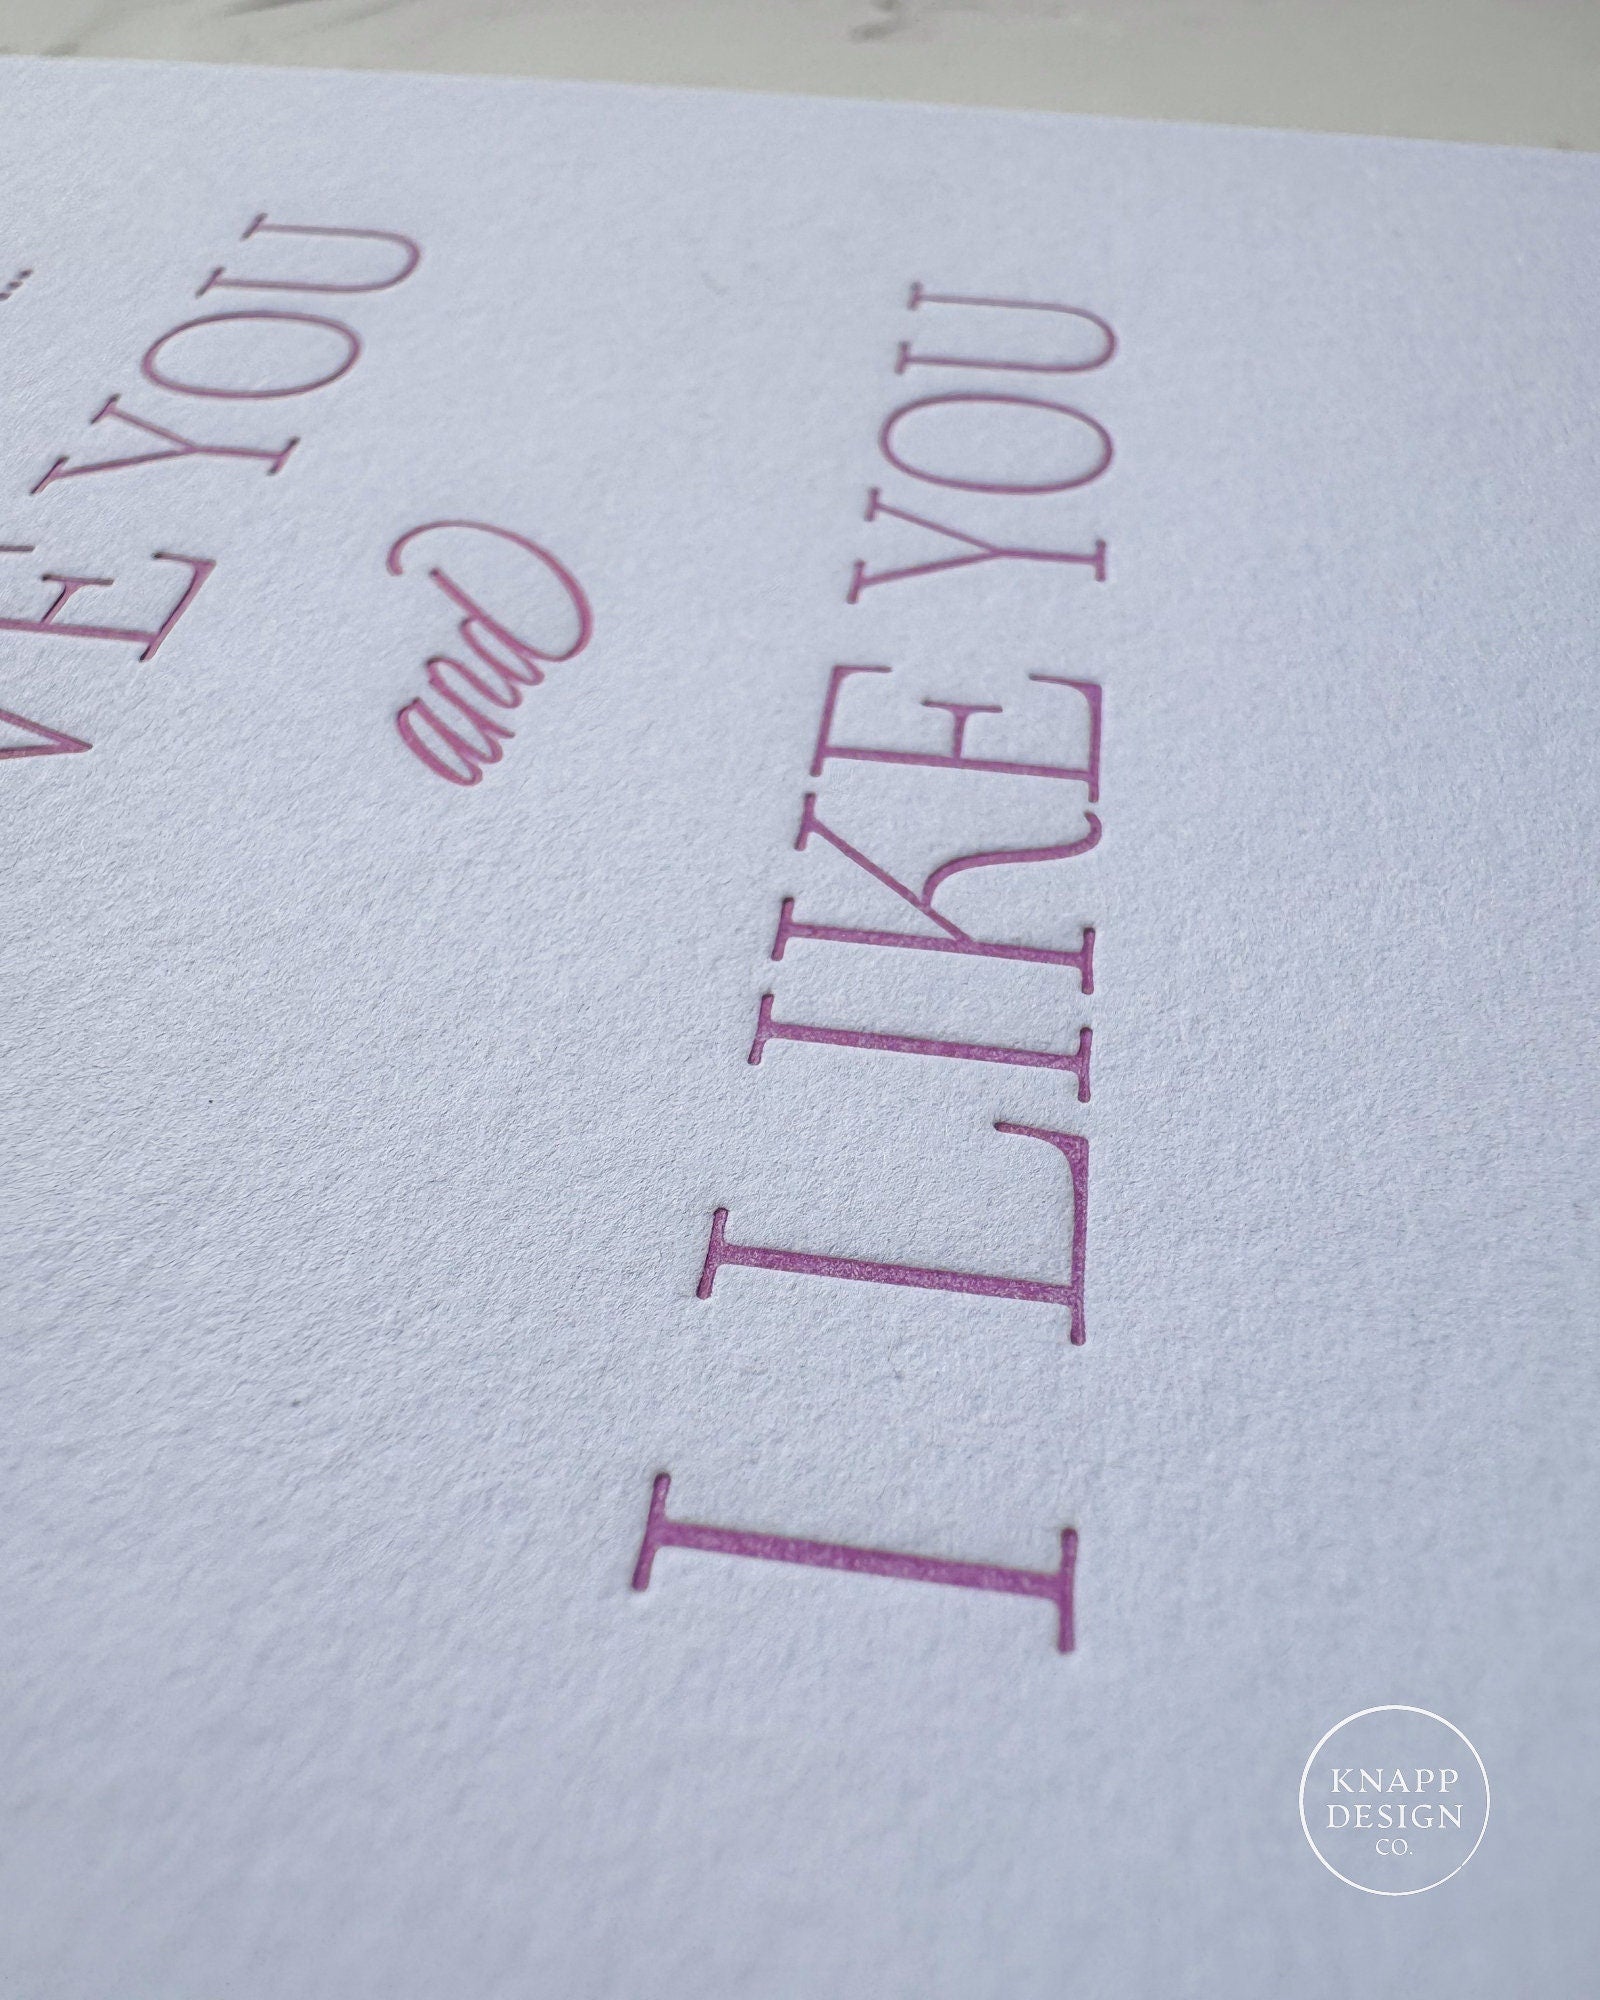 VE YOU
and
I LIKE YOU
KNAPP
DESIGN
CO.